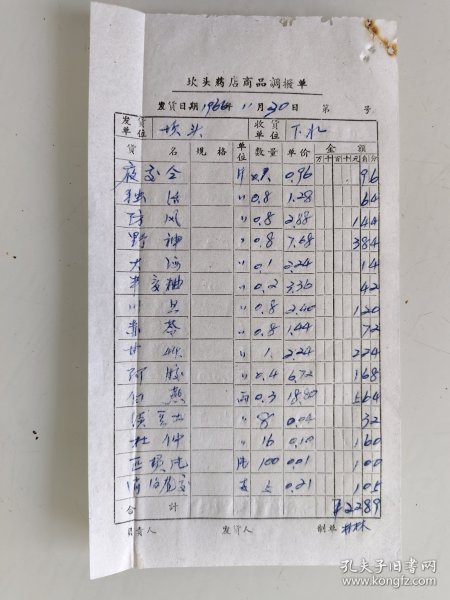 坎头药店商品调拨单
发货日期1966年11月30日 第 号
发货单位 坎头 收货单位 下札
货名 规格 单位 数量 单价 金额
万 千 百 十 元 角 分
夜交仝 斤 1. 0.96 96
独活 〃 0.8 1.28 64
防风 〃 0.8 2.88 144
野神 〃 0.8 7.68 384
大 〃 0.1 2.24 14
〃 0.2 3.36 42
川贝 〃 0.8 2.40 120
黄苓 〃 0.8 1.44 72
甘 〃 1. 2.24 224
阿胶 〃 0.4 6.72 168
白燕 两 0.3 18.80 564
〃 8 0.04 32
杜仲 〃 16 0.10 160
片 100 0.01 100
支 5 0.21 105
合计 ¥2289
负责人 发货人 制单 林
孔夫子旧书网
book.kongfz.com